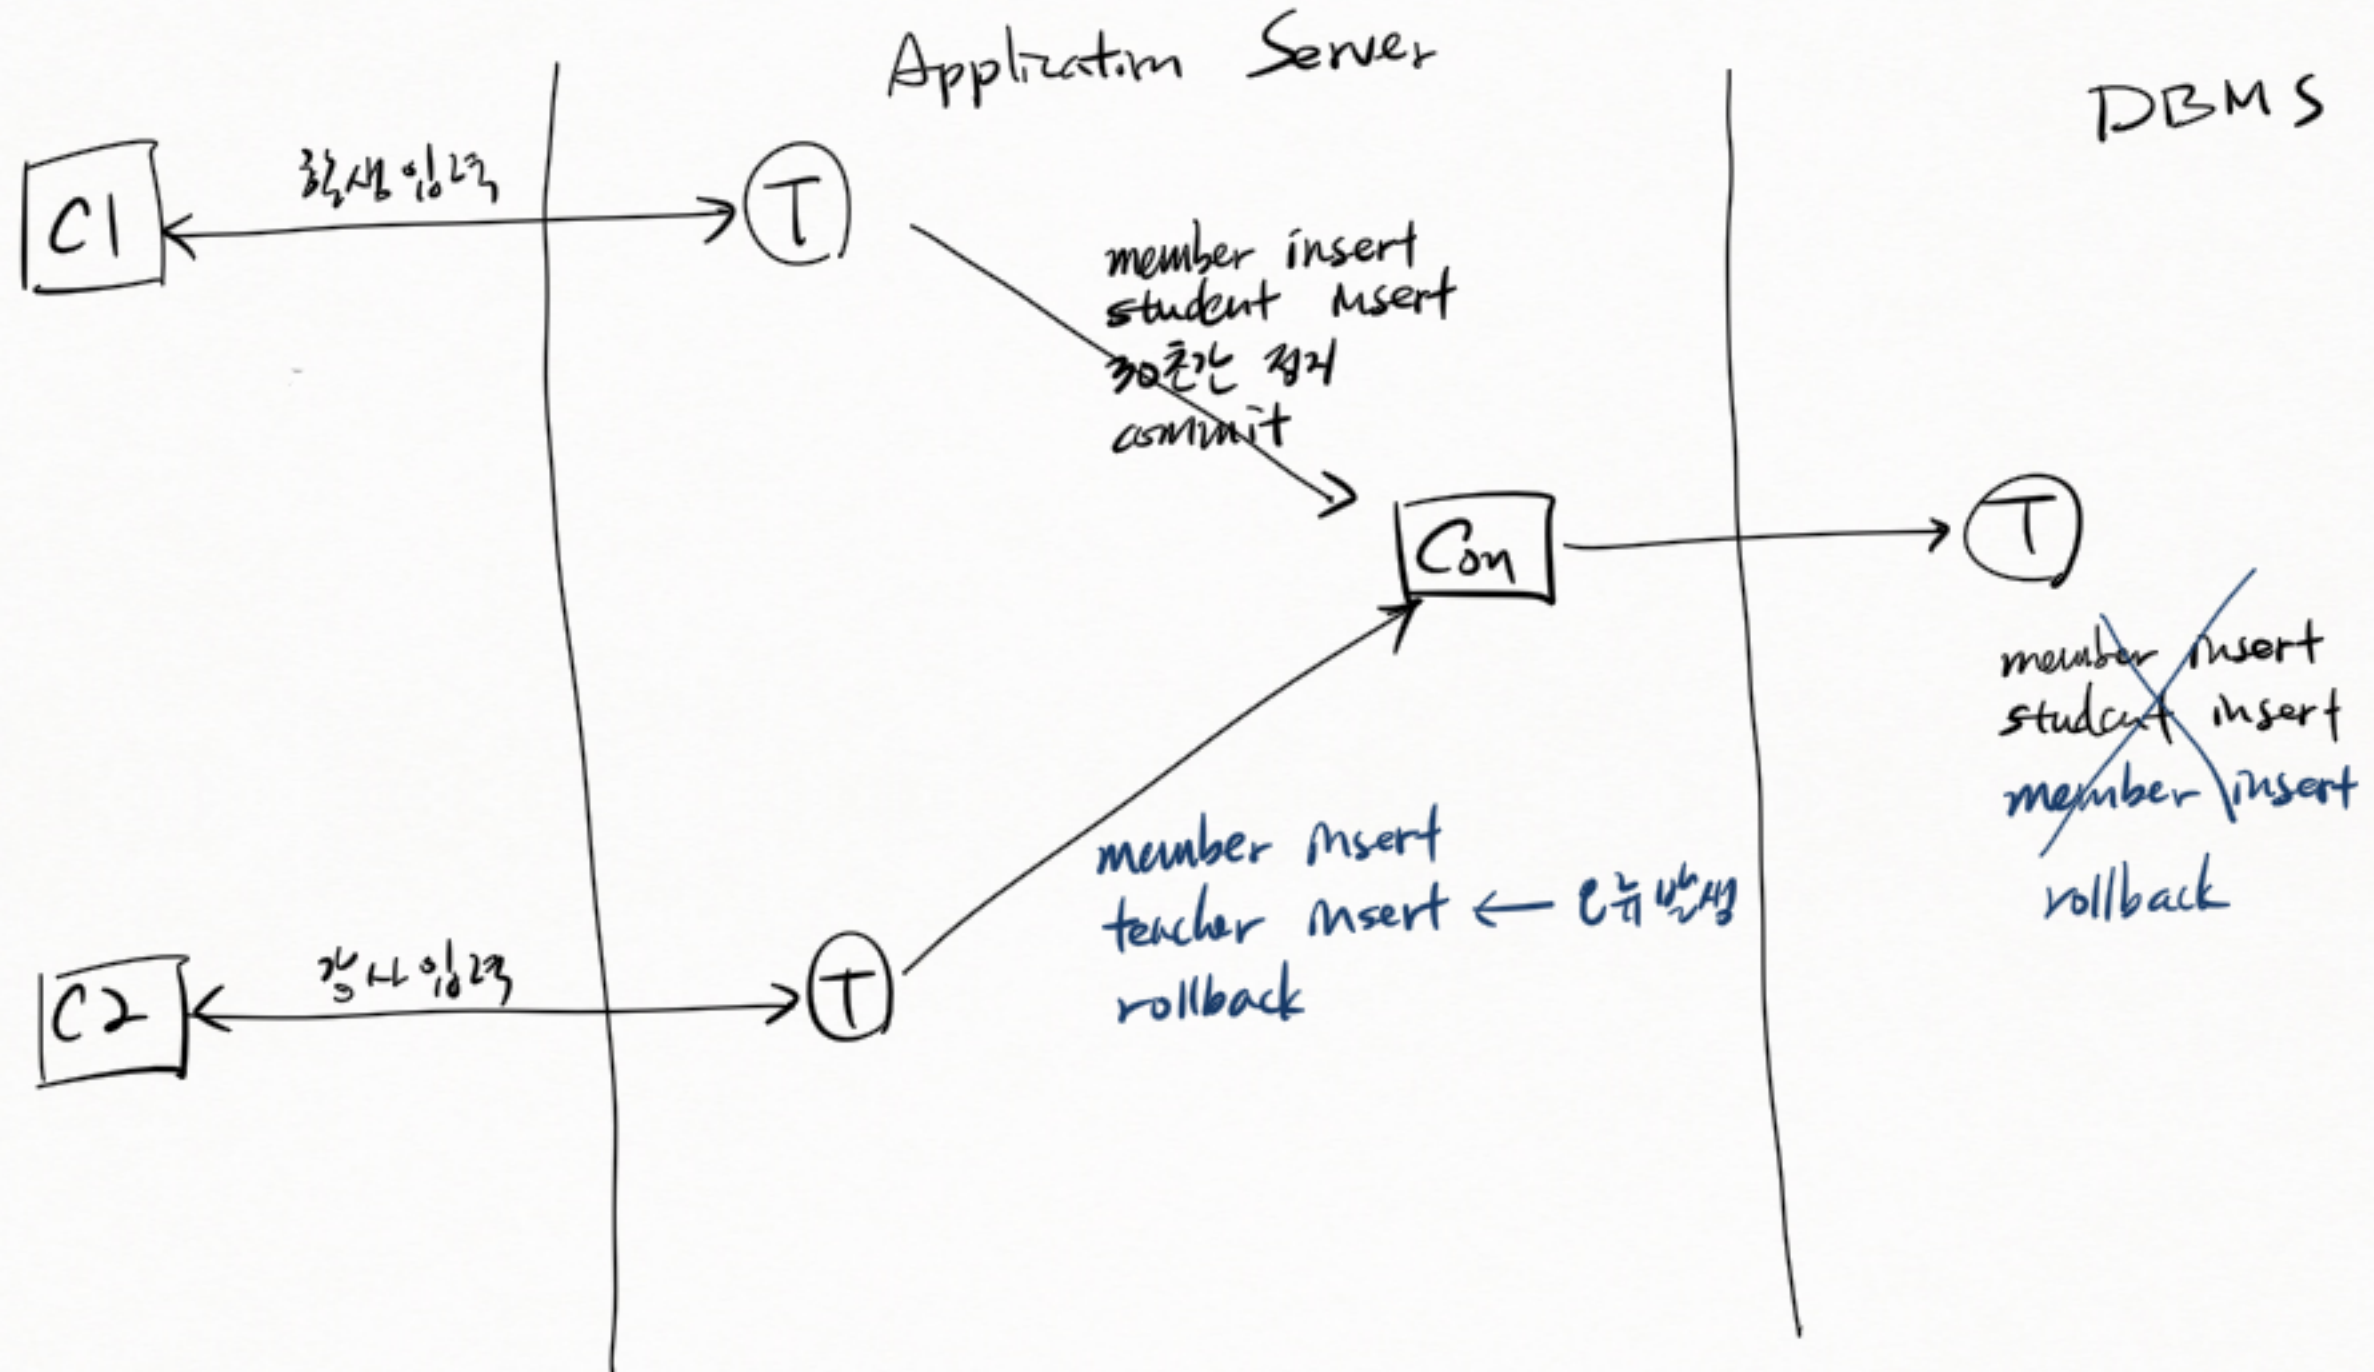 Application Server
DBMS
C1
학생입력
T
member insert
student insert
30초간 정지
commit
Con
T
member insert
student insert
member insert
rollback
member insert
teacher insert ← 오류발생
rollback
C2
강사입력
T